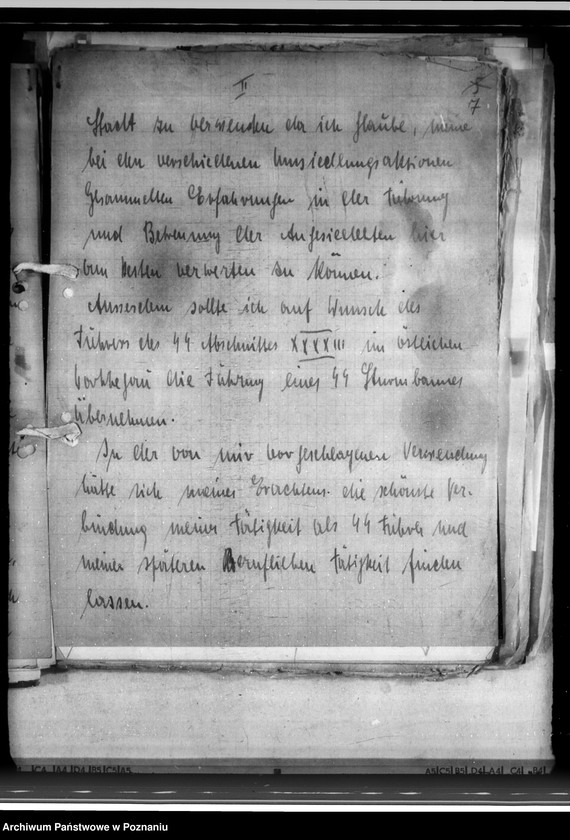 II
7
Stadt zu verwenden da ich glaube, meine
bei den verschiedenen Umsiedlungsaktionen
Gesammelten Erfahrungen in der Führung
und Betreuung der Angesiedelten hier
am besten verwerten zu können.
Ausserdem sollte ich auf Wunsch des
Führers des SS Abschnittes XXXXIII im östlichen
Warthegau die Führung eines SS Sturmbannes
übernehmen.
In der von mir vorgeschlagenen Verwendung
hätte sich meines Erachtens die schönste Ver-
bindung meiner Tätigkeit als SS Führer und
meiner späteren Beruflichen Tätigkeit finden
lassen.
Archiwum Państwowe w Poznaniu